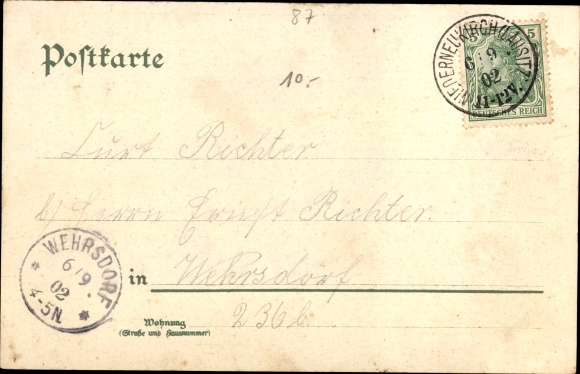 87
Postkarte
NIEDERNEUKIRCH (LAUSITZ)
6 9
02
11-12V.
5
DEUTSCHES REICH
10.-
Curt Richter
b/ Herrn Ernst Richter.
WEHRSDORF
6 9
02
4-5N
in Wehrsdorf
236b.
Wohnung
(Straße und Hausnummer)